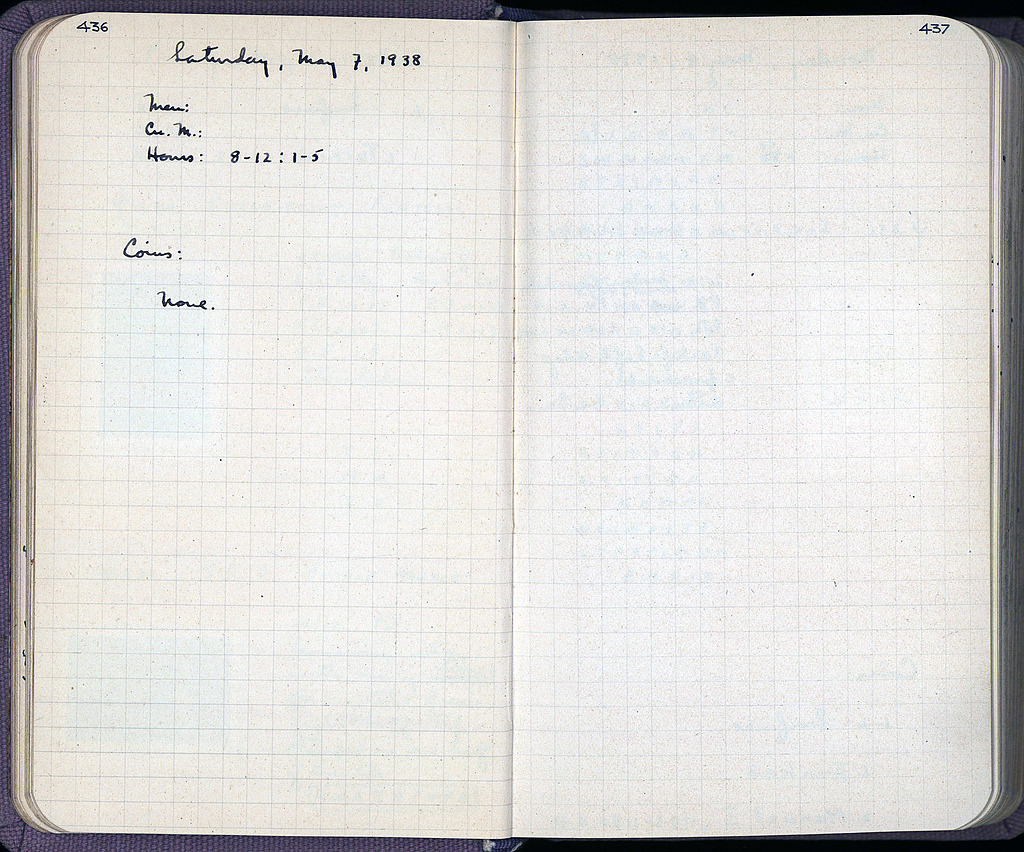 436
Saturday, May 7, 1938
Men:
Cu. M.:
Hours: 8-12 : 1-5
Coins:
None.
437